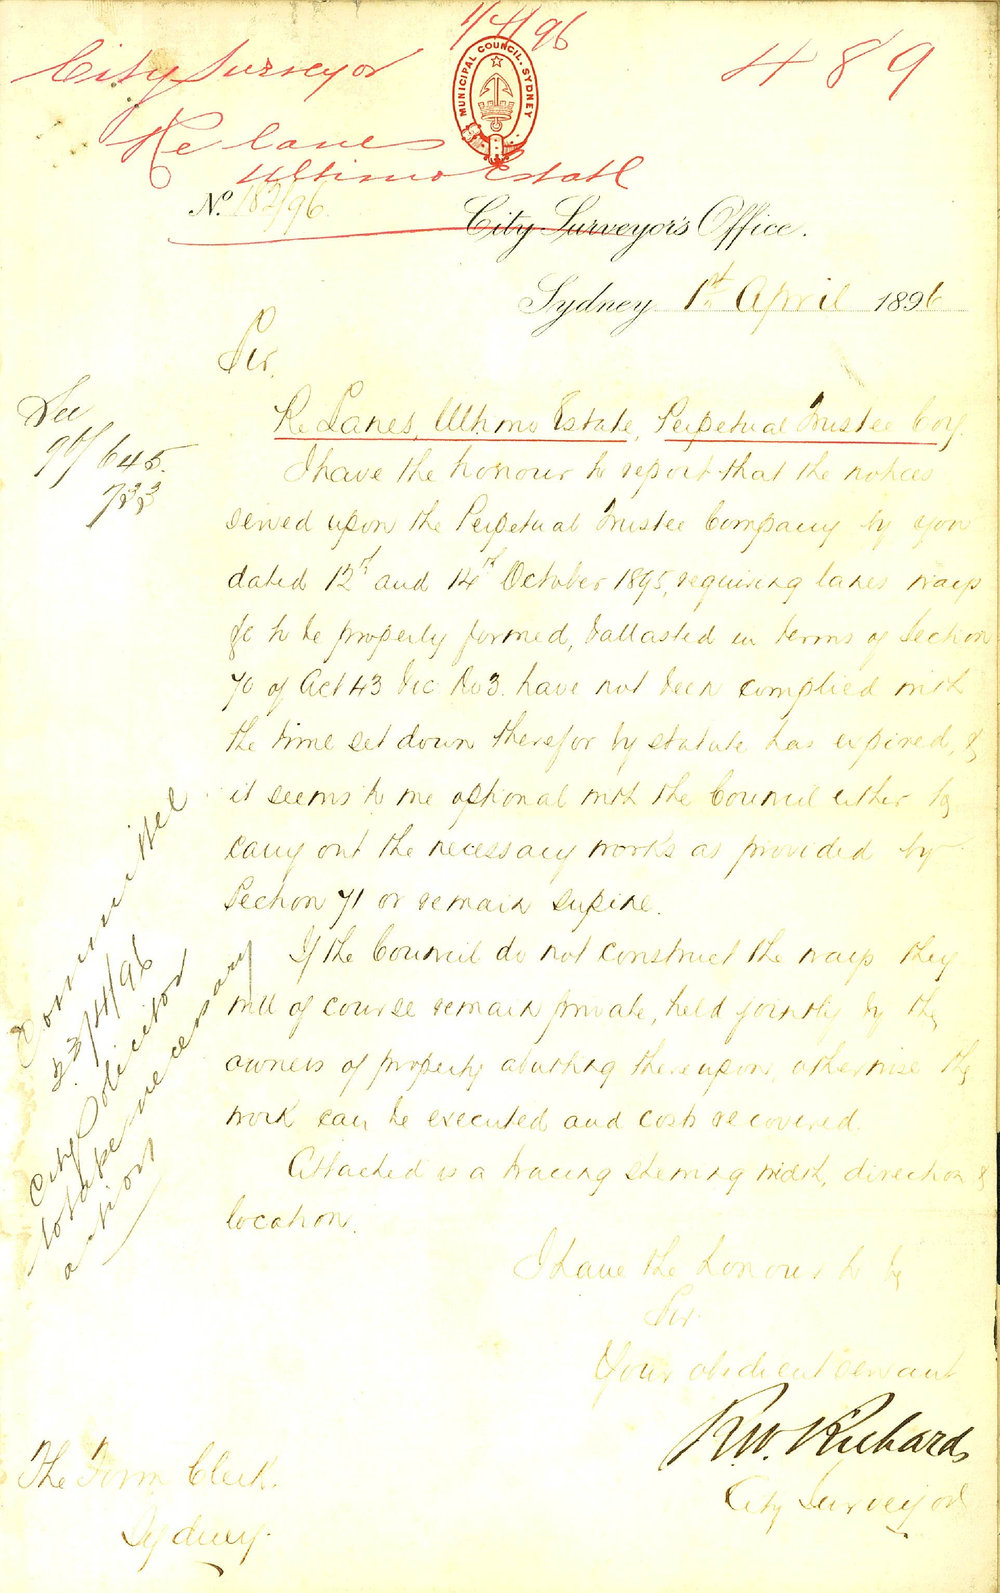 1/4/96
489
City Surveyor
MUNICIPAL COUNCIL. SYDNEY
Re lanes
Ultimo Estate
No. 182/96
City Surveyor's Office.
Sydney 1st April 1896
Sir,
See
96/645.
733
Re Lanes, Ultimo Estate, Perpetual Trustee Coy.
I have the honour to report that the notices
served upon the Perpetual Trustee Company by you
dated 12th and 14th October 1895, requiring lanes ways
&c to be properly formed, ballasted in terms of Section
70 of Act 43 Vic No 3. have not been complied with
the time set down therefor by statute has expired, &
it seems to me optional with the Council either to
carry out the necessary works as provided by
Section 71 or remain supine.
If the Council do not construct the ways they
will of course remain private, held jointly by the
owners of property abutting thereupon, otherwise the
work can be executed and costs recovered.
Attached is a tracing shewing width, direction &
location.
Committee
23/4/96
City Solicitor
to take necessary
action
I have the honour to be
Sir
Your obedient servant
R.W. Richards
City Surveyor
The Town Clerk.
Sydney.